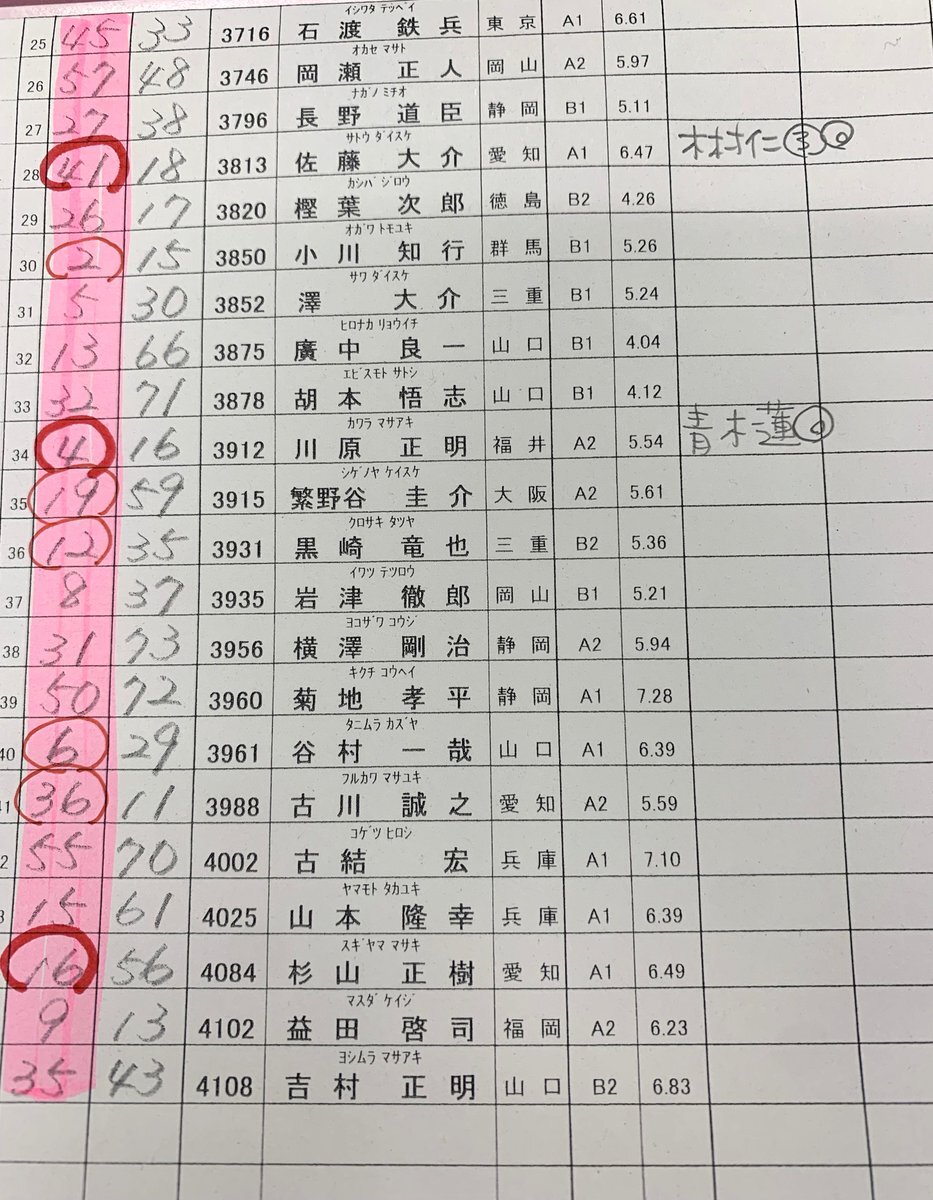 イシワタ テッペイ
25 45 33 3716 石渡 鉄兵 東京 A1 6.61
オカセ マサト
26 57 48 3746 岡瀬 正人 岡山 A2 5.97
ナガノ ミチオ
27 27 38 3796 長野 道臣 静岡 B1 5.11
サトウ ダイスケ
28 41 18 3813 佐藤 大介 愛知 A1 6.47 木村仁③◎
カシバ ジロウ
29 26 17 3820 樫葉 次郎 徳島 B2 4.26
オガワ トモユキ
30 2 15 3850 小川 知行 群馬 B1 5.26
サワ ダイスケ
31 5 30 3852 澤 大介 三重 B1 5.24
ヒロナカ リョウイチ
32 13 66 3875 廣中 良一 山口 B1 4.04
エビスモト サトシ
33 32 71 3878 胡本 悟志 山口 B1 4.12
カワラ マサアキ
34 4 16 3912 川原 正明 福井 A2 5.54 青木蓮◎
シゲノヤ ケイスケ
35 19 59 3915 繁野谷 圭介 大阪 A2 5.61
クロサキ タツヤ
36 12 35 3931 黒崎 竜也 三重 B2 5.36
イワツ テツロウ
37 8 37 3935 岩津 徹郎 岡山 B1 5.21
ヨコザワ コウジ
38 31 73 3956 横澤 剛治 静岡 A2 5.94
キクチ コウヘイ
39 50 72 3960 菊地 孝平 静岡 A1 7.28
タニムラ カズヤ
40 6 29 3961 谷村 一哉 山口 A1 6.39
フルカワ マサユキ
1 36 11 3988 古川 誠之 愛知 A2 5.59
コゲツ ヒロシ
2 55 70 4002 古結 宏 兵庫 A1 7.10
ヤマモト タカユキ
3 15 61 4025 山本 隆幸 兵庫 A1 6.39
スギヤマ マサキ
16 56 4084 杉山 正樹 愛知 A1 6.49
マスダ ケイジ
9 13 4102 益田 啓司 福岡 A2 6.23
ヨシムラ マサアキ
35 43 4108 吉村 正明 山口 B2 6.83